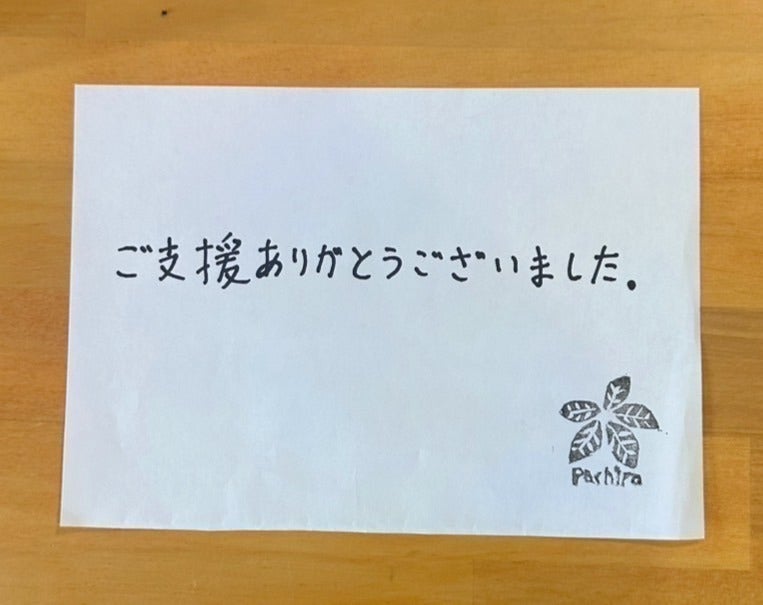 ご支援ありがとうございました.
Pachira